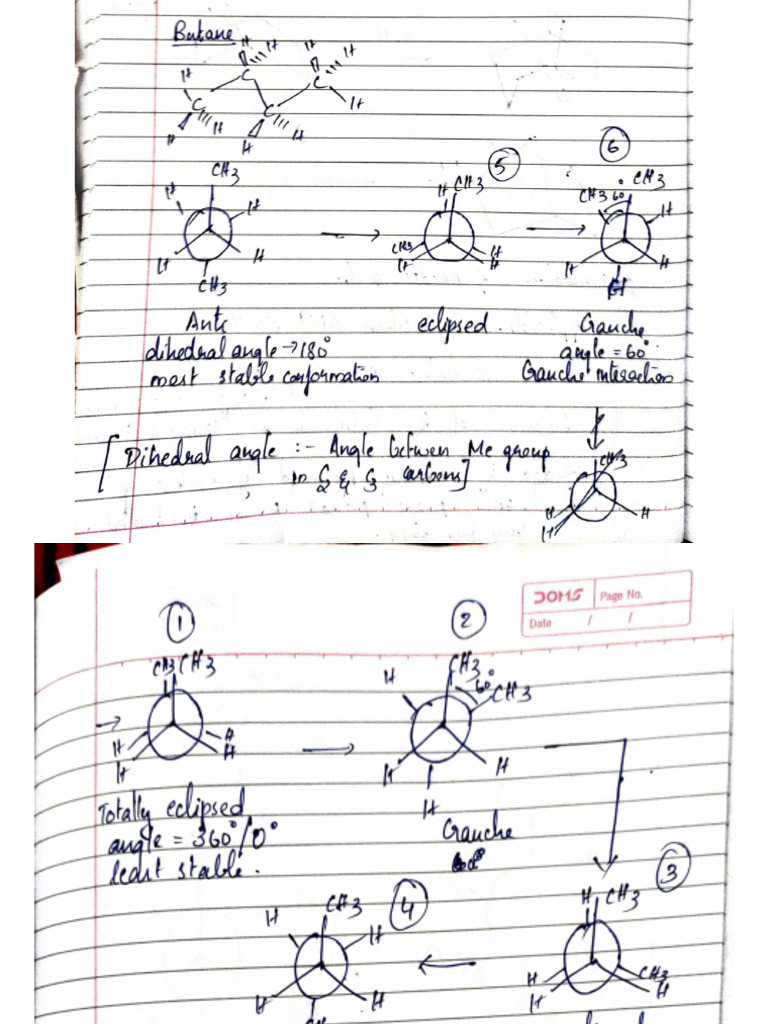 Butane
H H H H H
H C C C C H
H H H H
5 6
CH3 H CH3 CH3 60 CH3
H H H
CH3 H H
H H H H H H
CH3
Anti eclipsed. Gauche
dihedral angle → 180° angle = 60°
most stable conformation Gauche interaction
[Dihedral angle :- Angle between Me group
in C2 & C3 carbons]
CH3
H H
H
DOMS Page No.
Date / /
1 2
CH3 CH3 H CH3 60° CH3
H H
H H H H
H
Totally eclipsed Gauche
angle = 360°/0°
least stable.
4 3
H CH3 H H CH3
H H H CH3
H H